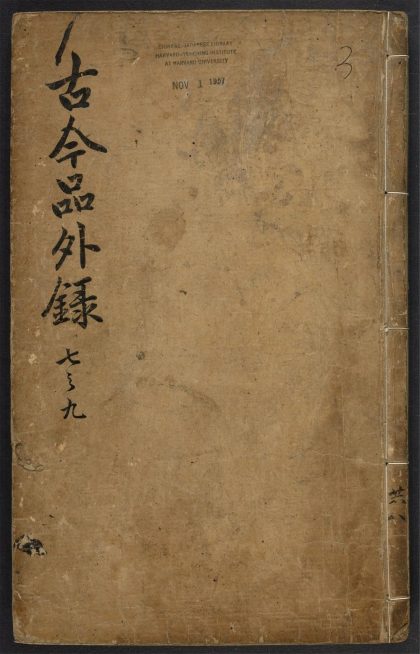 古今品外錄
七之九
共八
CHINESE-JAPANESE LIBRARY
HARVARD-YENCHING INSTITUTE
AT HARVARD UNIVERSITY
NOV 1 1957
3